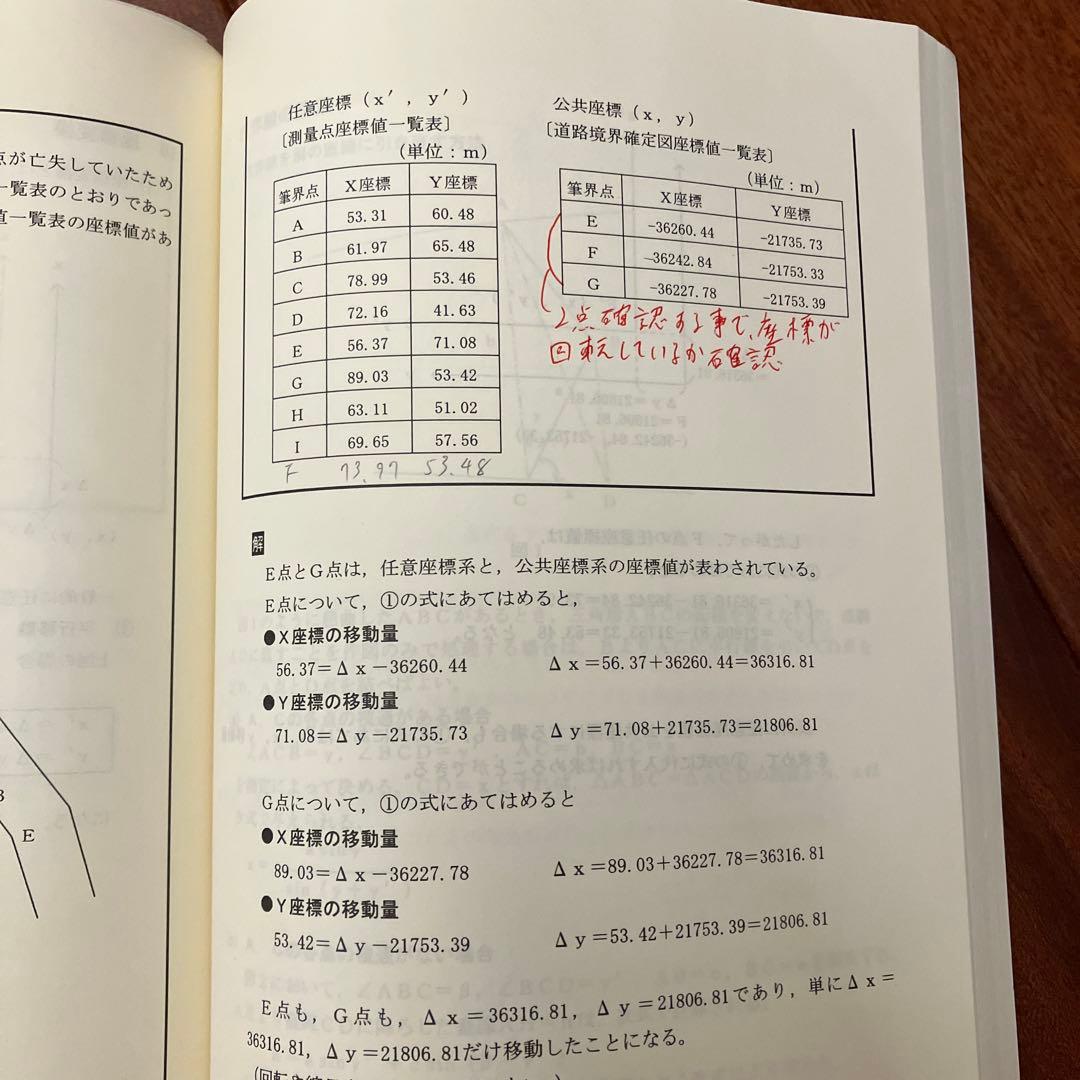 点が亡失していたため
一覧表のとおりであっ
直一覧表の座標値があ
E
任意座標（x′，y′）
〔測量点座標値一覧表〕
（単位：m）
筆界点 X座標 Y座標
A 53.31 60.48
B 61.97 65.48
C 78.99 53.46
D 72.16 41.63
E 56.37 71.08
G 89.03 53.42
H 63.11 51.02
I 69.65 57.56
F 73.97 53.48
公共座標（x，y）
〔道路境界確定図座標値一覧表〕
（単位：m）
筆界点 X座標 Y座標
E -36260.44 -21735.73
F -36242.84 -21753.33
G -36227.78 -21753.39
2点確認する事で、座標が
回転しているか確認
解
E点とG点は，任意座標系と，公共座標系の座標値が表わされている。
E点について，①の式にあてはめると，
●X座標の移動量
56.37＝Δx－36260.44 Δx＝56.37＋36260.44＝36316.81
●Y座標の移動量
71.08＝Δy－21735.73 Δy＝71.08＋21735.73＝21806.81
G点について，①の式にあてはめると
●X座標の移動量
89.03＝Δx－36227.78 Δx＝89.03＋36227.78＝36316.81
●Y座標の移動量
53.42＝Δy－21753.39 Δy＝53.42＋21753.39＝21806.81
E点も，G点も，Δx＝36316.81，Δy＝21806.81であり，単にΔx＝
36316.81，Δy＝21806.81だけ移動したことになる。